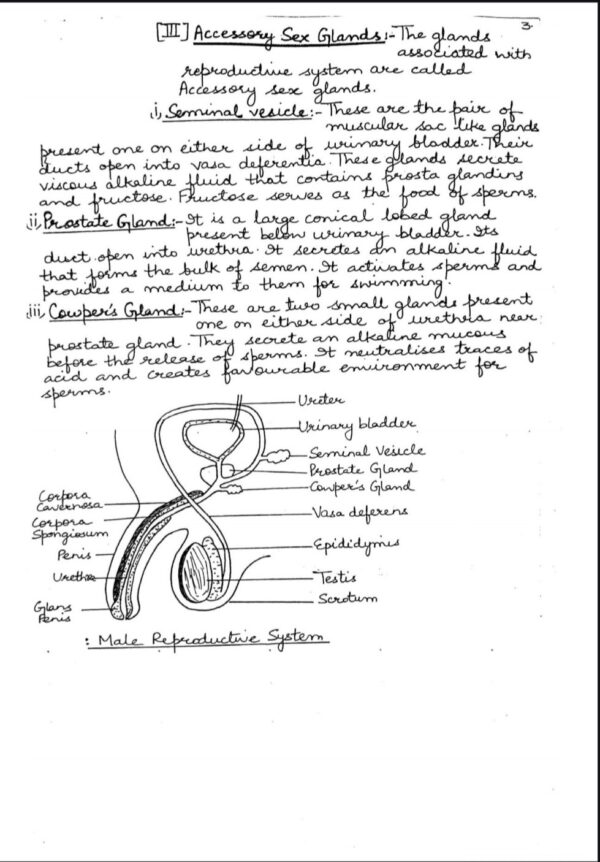 3
[III] Accessory Sex Glands:- The glands
associated with
reproductive system are called
Accessory sex glands.
i, Seminal vesicle:- These are the pair of
muscular sac like glands
present one on either side of urinary bladder. Their
ducts open into vasa deferentia. These glands secrete
viscous alkaline fluid that contains prosta glandins
and fructose. Fructose serves as the food of sperms.
ii, Prostate Gland:- It is a large conical lobed gland
present below urinary bladder. Its
duct open into urethra. It secretes an alkaline fluid
that forms the bulk of semen. It activates sperms and
provides a medium to them for swimming.
iii, Cowper's Gland:- These are two small glands present
one on either side of urethra near
prostate gland. They secrete an alkaline mucous
before the release of sperms. It neutralises traces of
acid and creates favourable environment for
sperms.
Ureter
Urinary bladder
Seminal Vesicle
Prostate Gland
Cowper's Gland
Vasa deferens
Epididymis
Testis
Scrotum
Corpora
Cavernosa
Corpora
Spongiosum
Penis
Urethra
Glans
Penis
: Male Reproductive System